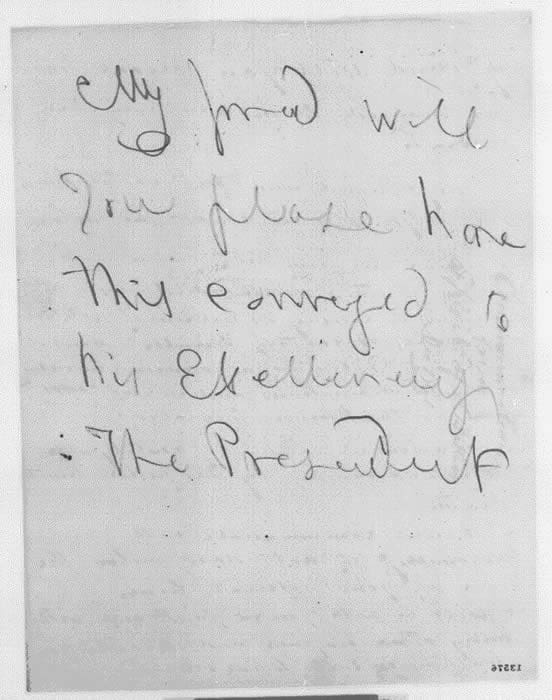 My frind will
You please have
this conveyed to
his Exellency
The President
13576